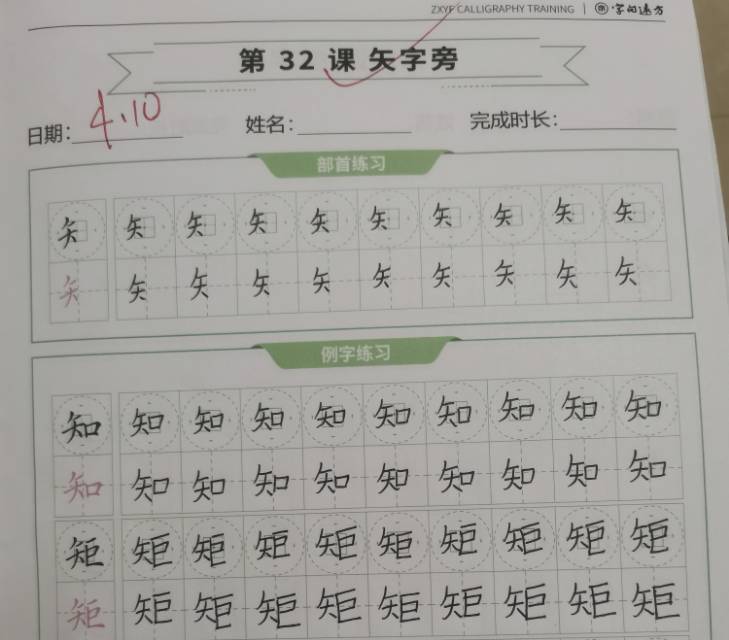 ZXYF CALLIGRAPHY TRAINING | 字的远方
第 32 课 矢字旁
日期: 4.10 姓名: 完成时长:
部首练习
矢 矢 矢 矢 矢 矢 矢 矢 矢 矢
矢 矢 矢 矢 矢 矢 矢 矢 矢 矢
例字练习
知 知 知 知 知 知 知 知 知 知
知 知 知 知 知 知 知 知 知 知
矩 矩 矩 矩 矩 矩 矩 矩 矩 矩
矩 矩 矩 矩 矩 矩 矩 矩 矩 矩